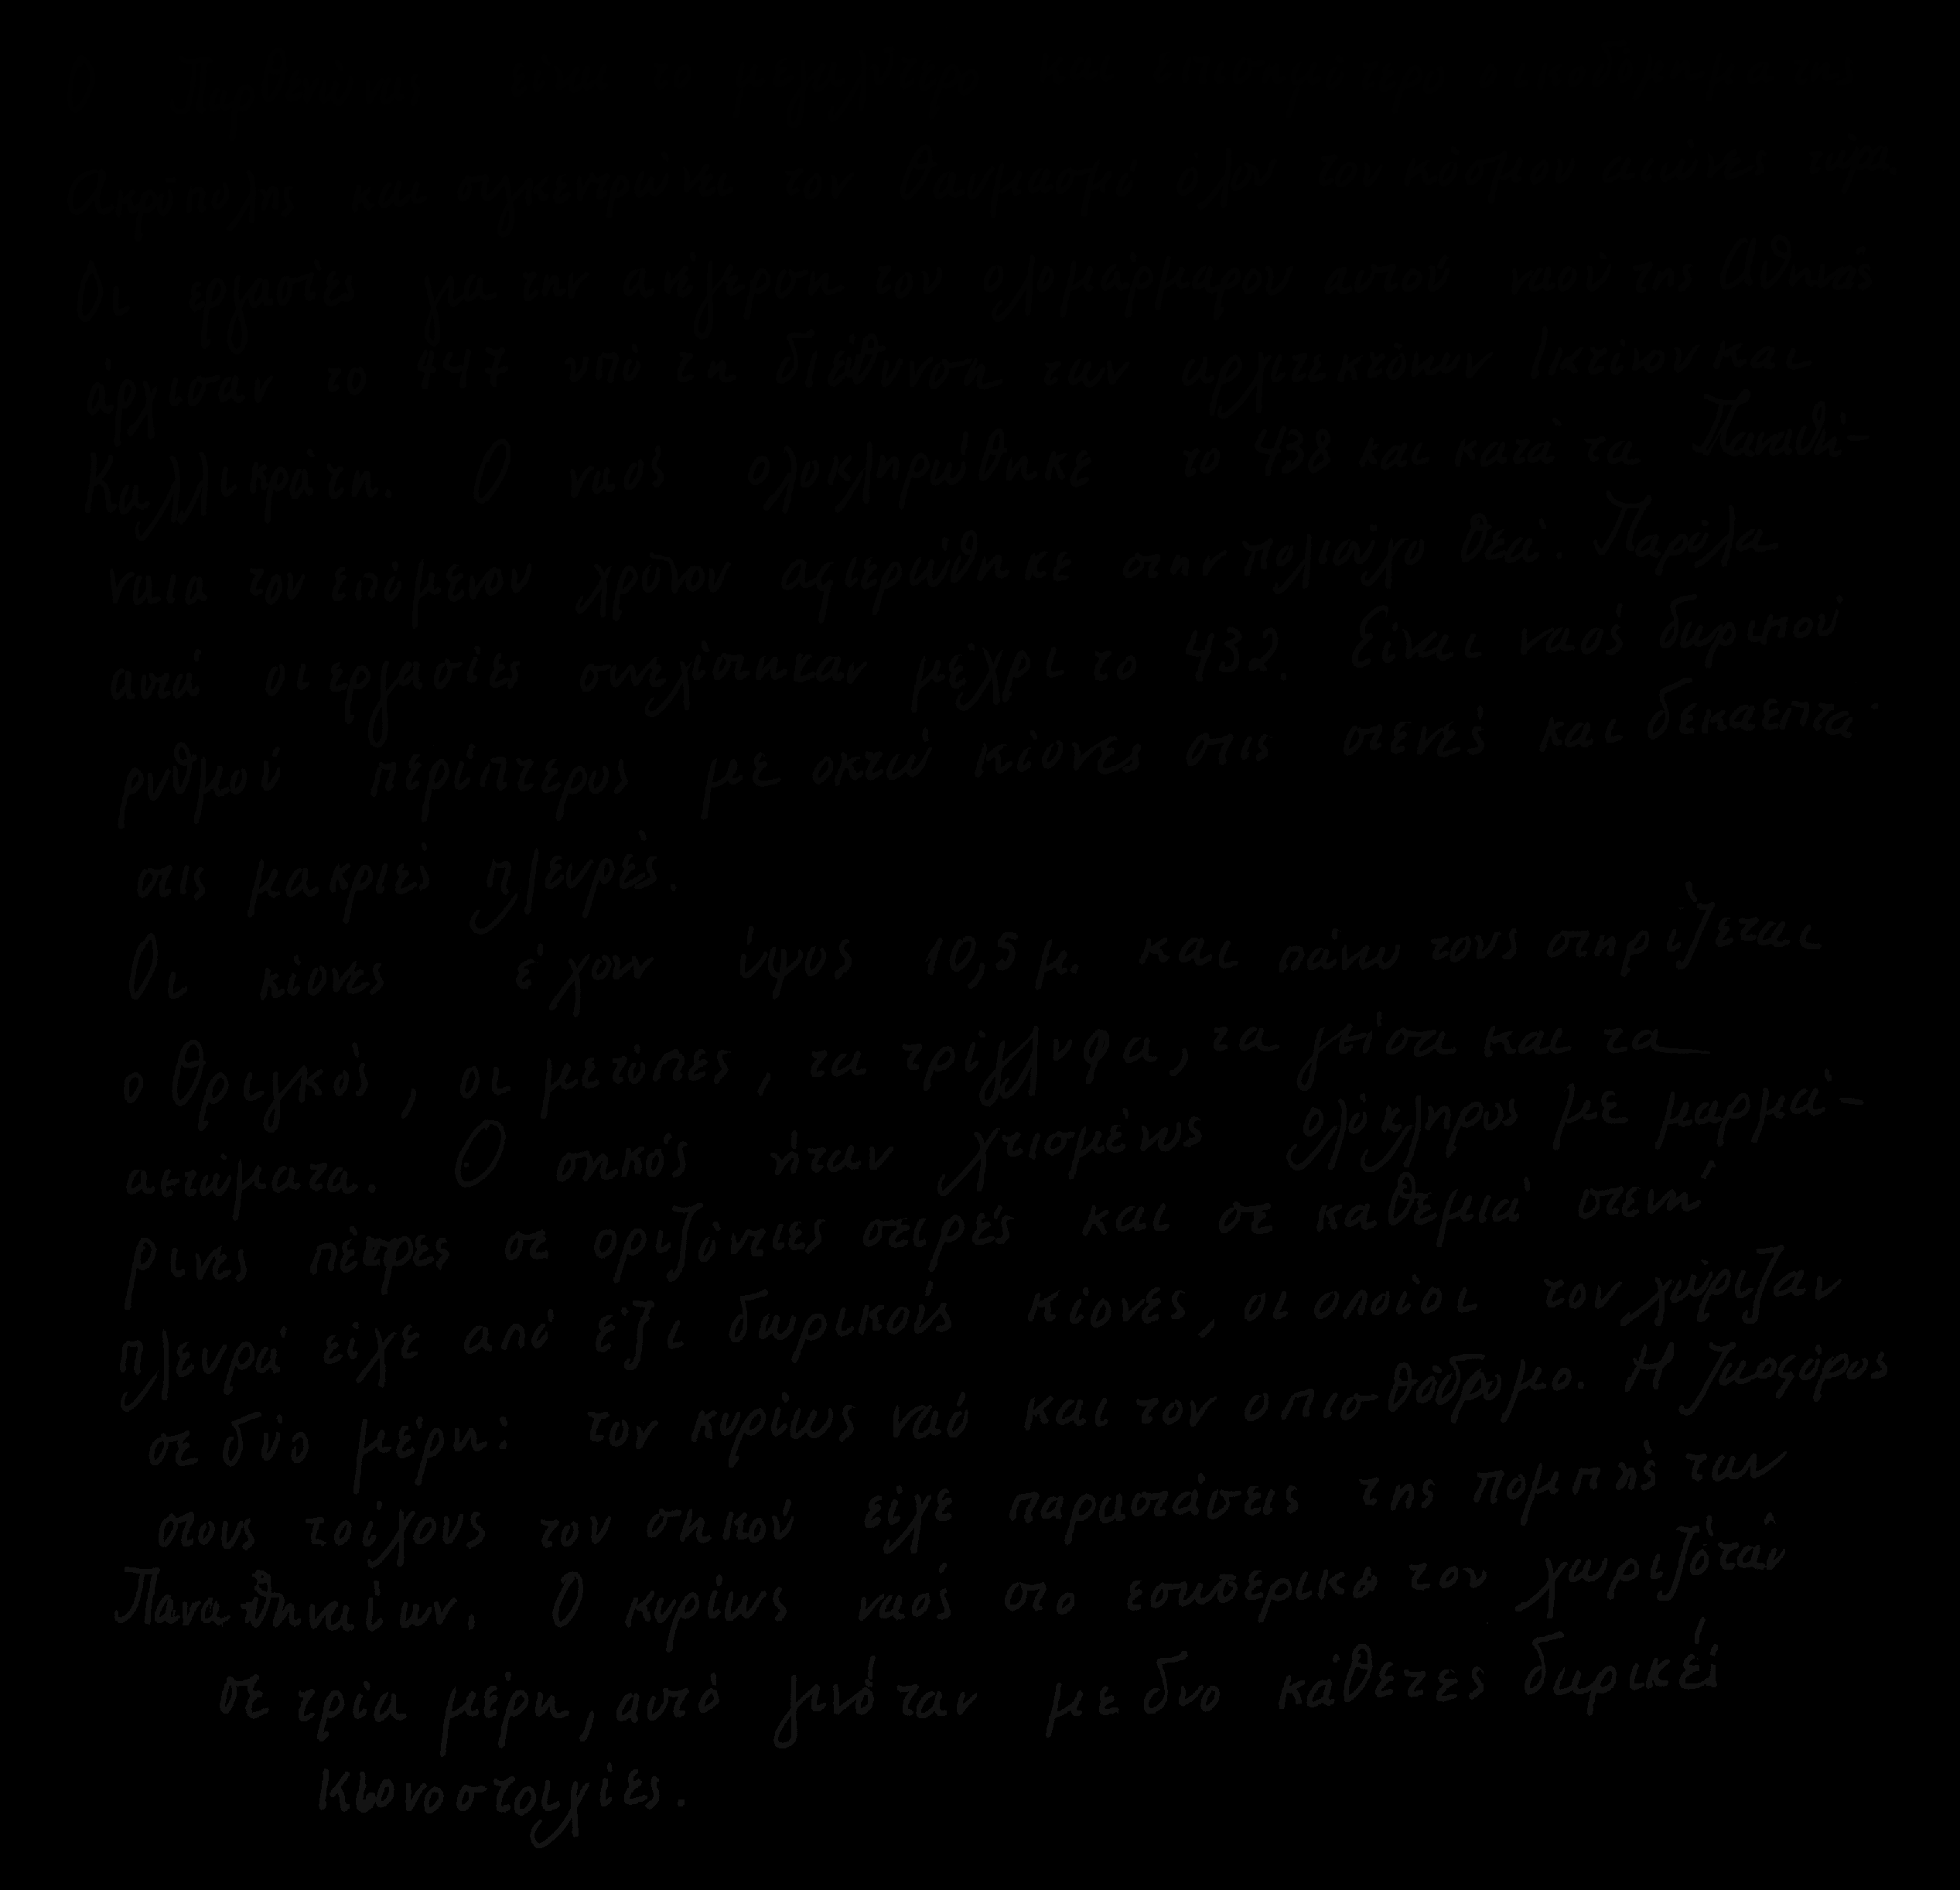 Ο Παρθενώνας είναι το μεγαλύτερο και
Ακρόπολης και συγκεντρώνει τον θαυμασμό όλου του κόσμου αιώνες τώρα
Οι εργασίες για την ανέγερση του ολομάρμαρου αυτού ναού της Αθηνάς
άρχισαν το 447 υπό τη διεύθυνση των αρχιτεκτόνων Ικτίνου και
Καλλικράτη. Ο ναός ολοκληρώθηκε το 438 και κατά τα Παναθή-
ναια του επόμενου χρόνου αφιερώθηκε στην πολιούχο θεά. Παρόλα
αυτά οι εργασίες συνεχίστηκαν μέχρι το 432. Είναι ναός δωρικού
ρυθμού περίπτερος με οκτώ κίονες στις στενές και δεκαεπτά
στις μακριές πλευρές.
Οι κίονες έχουν ύψος 10,5 μ. και πάνω τους στηρίζεται
ο θριγκός, οι μετόπες, τα τρίγλυφα, τα γείσα και τα
αετώματα. Ο σηκός ήταν χτισμένος ολόκληρος με μαρμά-
ρινες πέτρες σε οριζόντιες σειρές και σε καθεμιά στενή
πλευρά είχε από έξι δωρικούς κίονες, οι οποίοι τον χώριζαν
σε δύο μέρη: τον κυρίως ναό και τον οπισθόδρομο. Η ζωοφόρος
στους τοίχους του σηκού είχε παραστάσεις της πομπής των
Παναθηναίων. Ο κυρίως ναός στο εσωτερικό του χωριζόταν
σε τρία μέρη, αυτό γινόταν με δυο κάθετες δωρικές
κιονοστοιχίες.